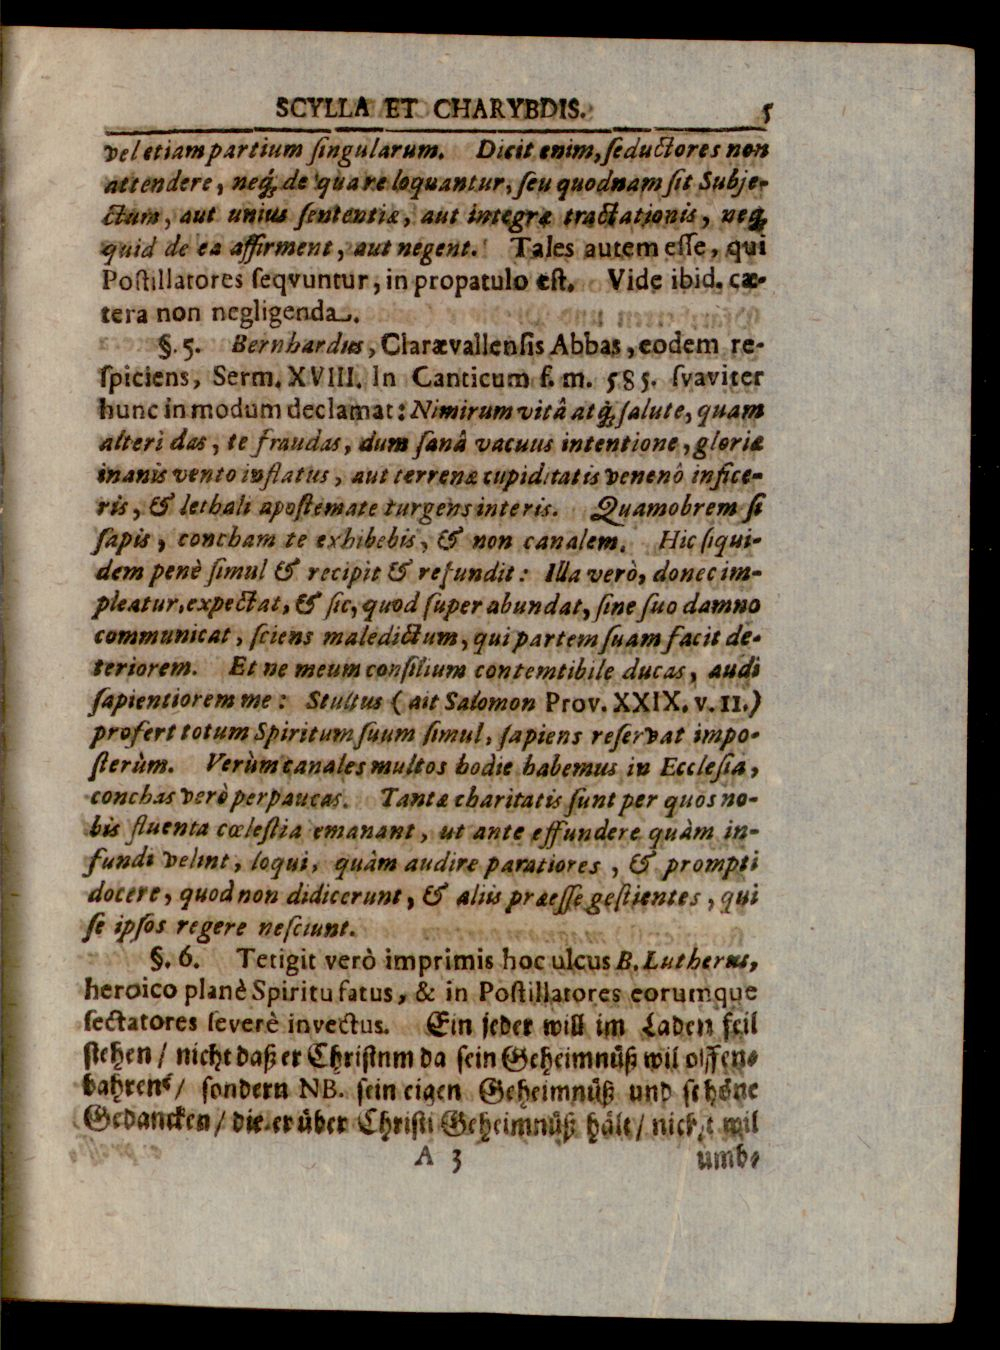 SCYLLA ET CHARYBDIS. 5
vel etiam partium ſingularum. Dicit enim, ſeductores non
attendere, neq́; de qua re loquantur, ſeu quodnam ſit Subje-
ctum, aut unius ſententiæ, aut integræ tractationis, neq́;
quid de ea affirment, aut negent. Tales autem eſſe, qui
Poſtillatores ſeqvuntur, in propatulo eſt. Vide ibid. cæ-
tera non negligenda.
§. 5. Bernhardus, Clarævallenſis Abbas, eodem re-
ſpiciens, Serm. XVIII. In Canticum f. m. 585. ſvaviter
hunc in modum declamat: Nimirum vitâ atq́; ſalute, quam
alteri das, te fraudas, dum ſanâ vacuus intentione, gloriæ
inanis vento inflatus, aut terrenæ cupiditatis venenô infice-
ris, & lethali apoſtemate turgens interis. Quamobrem ſi
ſapis, concham te exhibebis, & non canalem. Hic ſiqui-
dem penè ſimul & recipit & refundit: Illa verò, donec im-
pleatur, expectat, & ſic, quod ſuper abundat, ſine ſuo damno
communicat, ſciens maledictum, qui partem ſuam facit de-
teriorem. Et ne meum conſilium contemtibile ducas, audi
ſapientiorem me: Stultus (ait Salomon Prov. XXIX. v. 11.)
profert totum Spiritum ſuum ſimul, ſapiens reſervat impo-
ſterùm. Verùm canales multos hodie habemus in Eccleſia,
conchas verò perpaucas. Tantæ charitatis ſunt per quos no-
bis fluenta cœleſtia emanant, ut ante effundere quàm in-
fundi velint, loqui, quàm audire paratiores, & prompti
docere, quod non didicerunt, & aliis præeſſe geſtientes, qui
ſe ipſos regere neſciunt.
§. 6. Tetigit verò imprimis hoc ulcus B. Lutherus,
heroico planè Spiritu fatus, & in Poſtillatores eorumque
ſectatores ſeverè invectus. Ein jeder will im Laden feil
ſtehen / nicht daß er Chriſtnm da ſein Geheimnüß wil offen-
bahren / ſondern NB. ſein eigen Geheimnüß und ſchöne
Gedancken / die er über Chriſti Geheimnüß hält / nicht wil
A 3 umb-